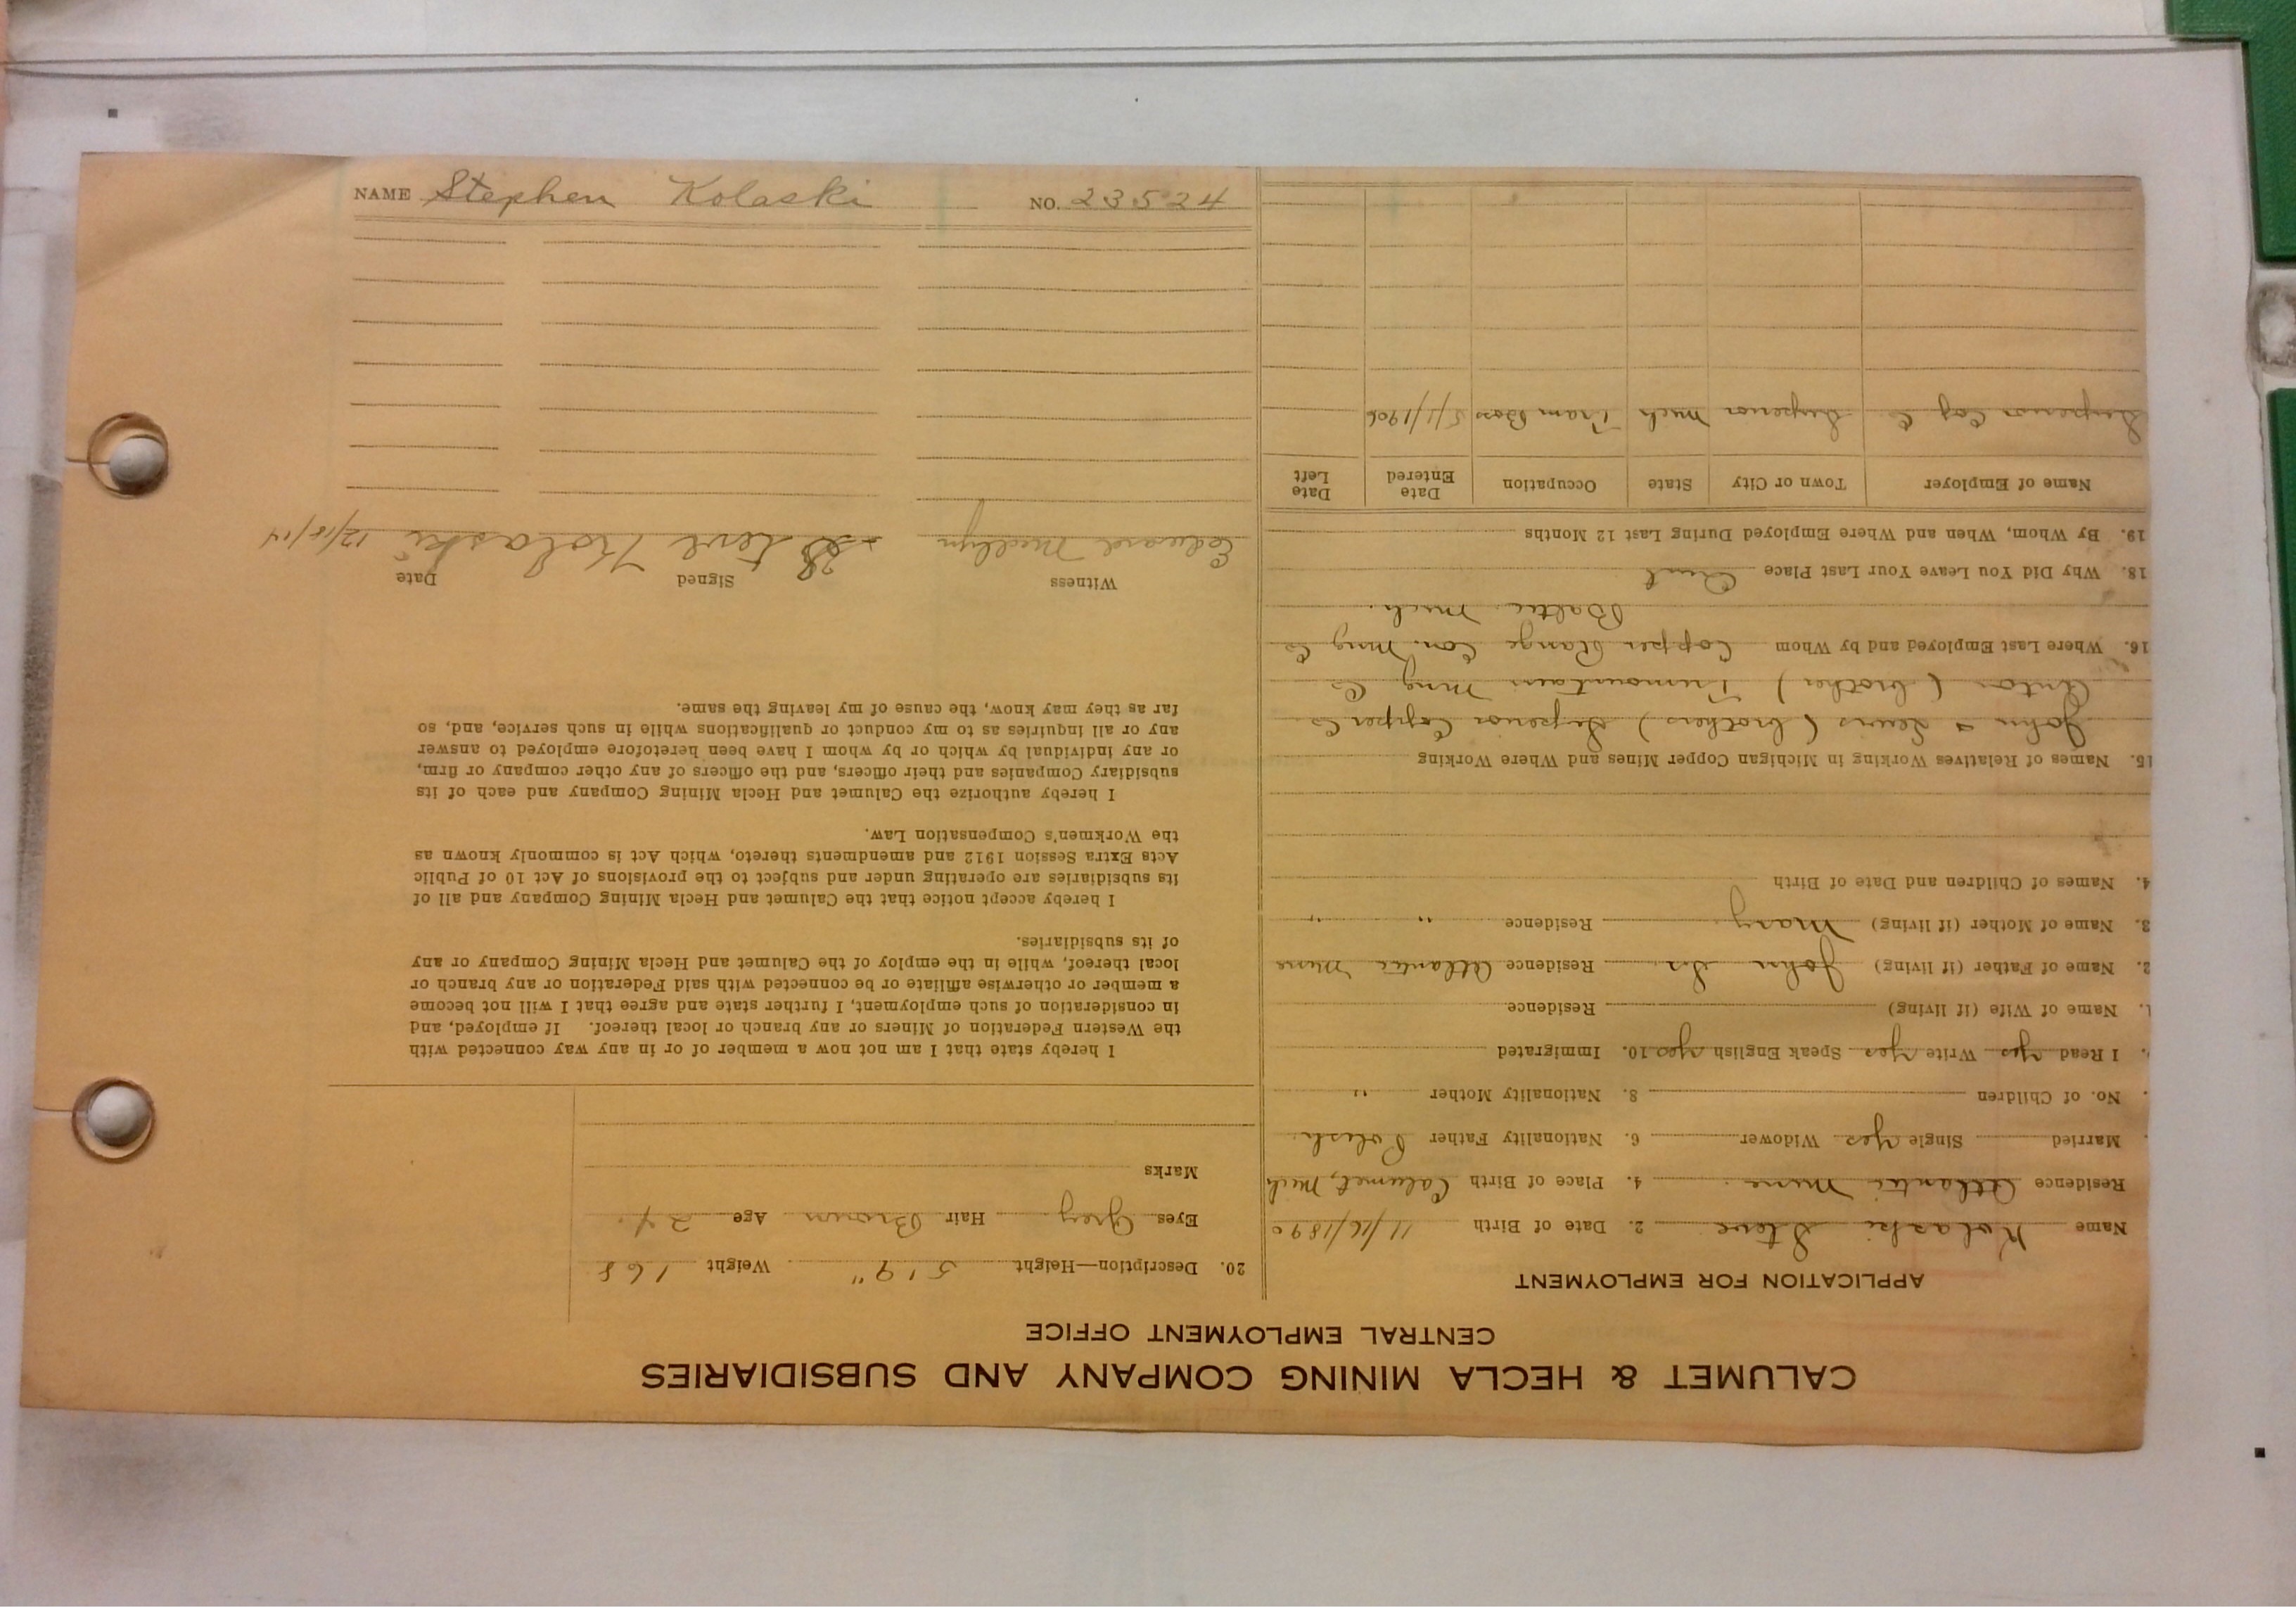 CALUMET & HECLA MINING COMPANY AND SUBSIDIARIES
CENTRAL EMPLOYMENT OFFICE
APPLICATION FOR EMPLOYMENT
Name Kolaski Steve 2. Date of Birth 11/16/1890
Residence Atlantic Mine. 4. Place of Birth Calumet, Mich
Married Single yes Widower 6. Nationality Father Polish.
No. of Children 8. Nationality Mother " 
I Read yes Write yes Speak English yes 10. Immigrated
1. Name of Wife (if living) Residence
2. Name of Father (if living) John Sr. Residence Atlantic Mine
3. Name of Mother (if living) Mary. Residence " "
4. Names of Children and Date of Birth
15. Names of Relatives Working in Michigan Copper Mines and Where Working
John & Lewis (brothers) Superior Copper Co
Anton (brother) Trimountain Mng Co
16. Where Last Employed and by Whom Copper Range Con. Mng Co
Baltic Mich.
18. Why Did You Leave Your Last Place Quit
19. By Whom, When and Where Employed During Last 12 Months
Name of Employer Town or City State Occupation Date Entered Date Left
Superior Cop Co Superior Mich Tram Boss 5/1/1906
20. Description—Height 5'9" Weight 168
Eyes Grey Hair Brown Age 24.
Marks
I hereby state that I am not now a member of or in any way connected with
the Western Federation of Miners or any branch or local thereof. If employed, and
in consideration of such employment, I further state and agree that I will not become
a member or otherwise affiliate or be connected with said Federation or any branch or
local thereof, while in the employ of the Calumet and Hecla Mining Company or any
of its subsidiaries.
I hereby accept notice that the Calumet and Hecla Mining Company and all of
its subsidiaries are operating under and subject to the provisions of Act 10 of Public
Acts Extra Session 1912 and amendments thereto, which Act is commonly known as
the Workmen's Compensation Law.
I hereby authorize the Calumet and Hecla Mining Company and each of its
subsidiary Companies and their officers, and the officers of any other company or firm,
or any individual by which or by whom I have been heretofore employed to answer
any or all inquiries as to my conduct or qualifications while in such service, and, so
far as they may know, the cause of my leaving the same.
Witness Signed Date
Edward Medlyn Steve Kolaski 12/18/14
NAME Stephen Kolaski NO. 23524